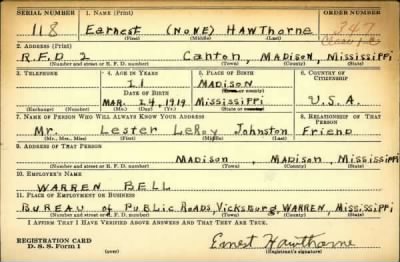 SERIAL NUMBER 1. NAME (Print) ORDER NUMBER
118 Earnest (NONE) HAWThorne 347
(First) (Middle) (Last)
2. ADDRESS (Print)
R.F.D 2 Canton, MADISON, Mississippi
(Number and street or R. F. D. number) (Town) (County) (State)
3. TELEPHONE 4. AGE IN YEARS 5. PLACE OF BIRTH 6. COUNTRY OF CITIZENSHIP
21 MADISON
(Town or county)
DATE OF BIRTH
MAR. 24, 1919 Mississippi U.S.A.
(Exchange) (Number) (Mo.) (Day) (Yr.) (State or country)
7. NAME OF PERSON WHO WILL ALWAYS KNOW YOUR ADDRESS 8. RELATIONSHIP OF THAT PERSON
Mr. Lester LeRoy Johnston Friend
(Mr., Mrs., Miss) (First) (Middle) (Last)
9. ADDRESS OF THAT PERSON
MADISON, MADISON, Mississippi
(Number and street or R. F. D. number) (Town) (County) (State)
10. EMPLOYER'S NAME
WARREN BELL
11. PLACE OF EMPLOYMENT OR BUSINESS
BUREAU of Public Roads, Vicksburg, WARREN, Mississippi
(Number and street or R. F. D. number) (Town) (County) (State)
I AFFIRM THAT I HAVE VERIFIED ABOVE ANSWERS AND THAT THEY ARE TRUE.
REGISTRATION CARD
D. S. S. Form 1 (over) Ernest Hawthorne
(Registrant's signature)